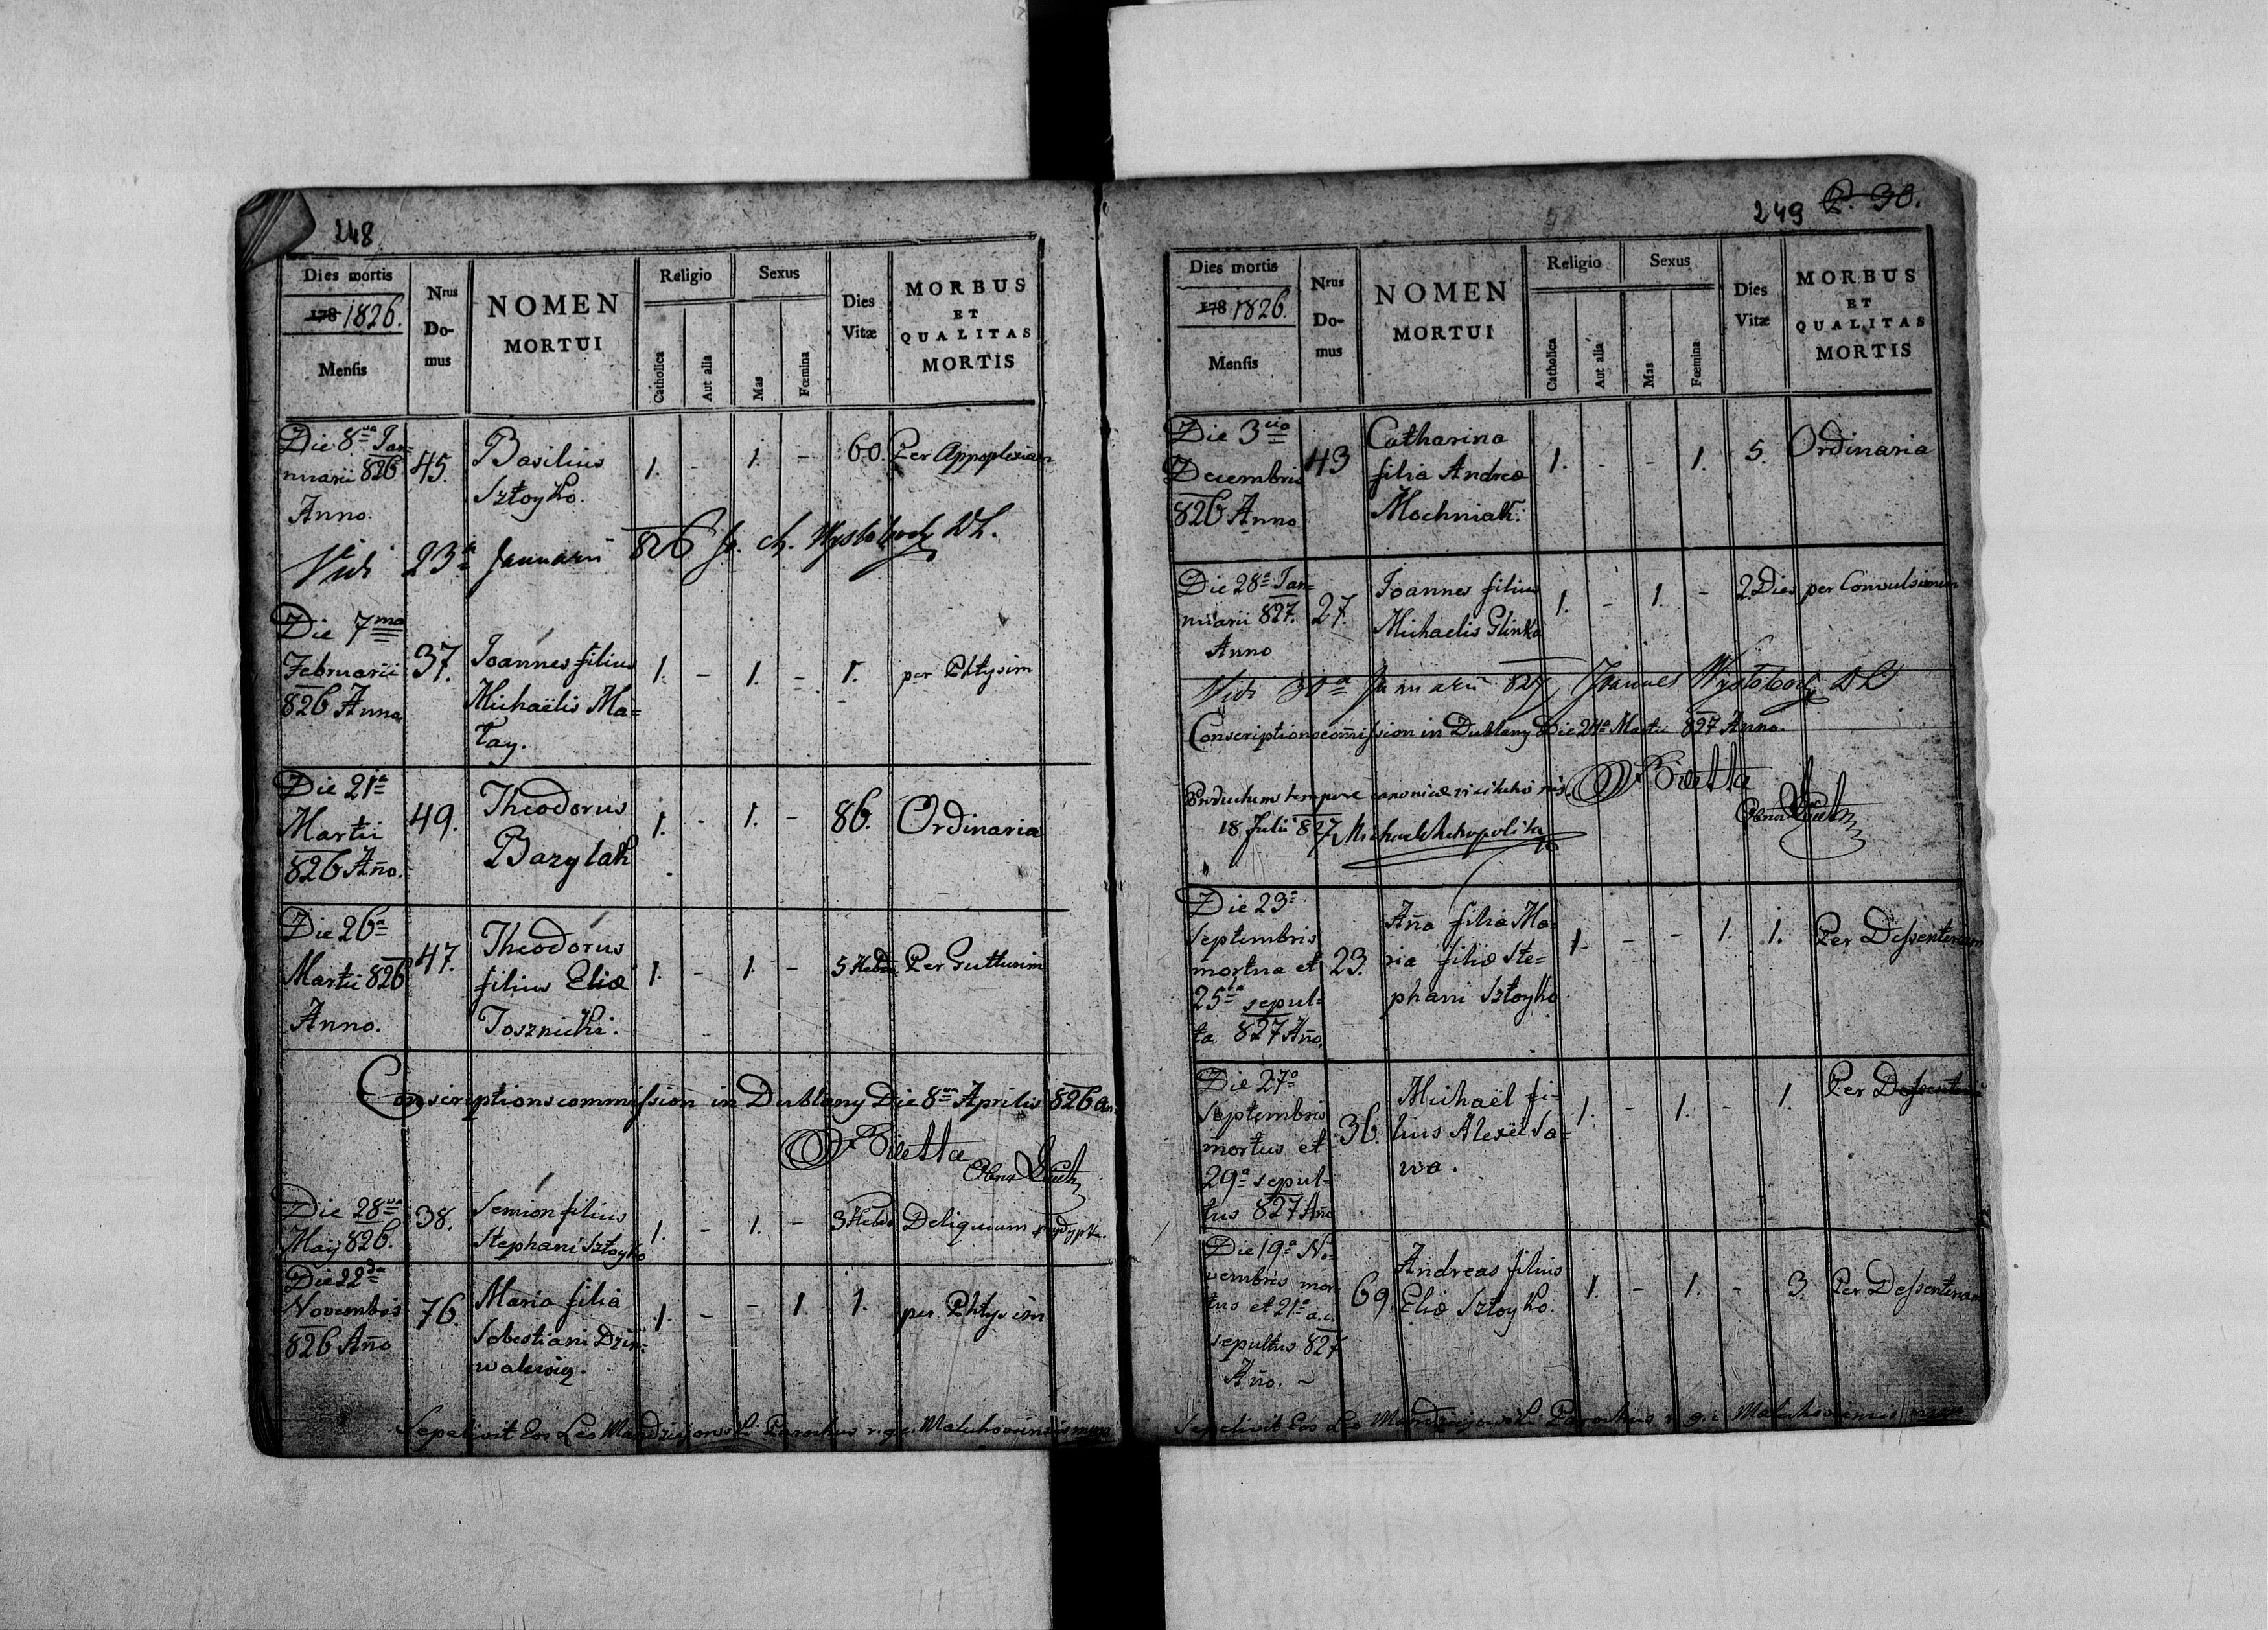 248
Dies mortis
178 1826.
Mensis
Nrus
Do-
mus
NOMEN
MORTUI
Religio
Catholica
Aut alia
Sexus
Mas
Fœmina
Dies
Vitæ
MORBUS
ET
QUALITAS
MORTIS
Die 8va Jan=
nuarii 826
Anno.
45.
Basilius
Sztoyko.
1. - 1. - 60. Per Appoplexiam
Vidi 23a Januarii 826
Die 7ma
Februarii
826 Anno
37.
Joannes filius
Michaëlis Ma=
tay.
1. - 1. - 1. per Phtysim
Die 21a
Martii
826 Año.
49.
Theodorus
Bazylak
1. - 1. - 86. Ordinaria
Die 26a
Martii 826
Anno.
47.
Theodorus
filius Eliæ
Tosznicki.
1. - 1. - 5 Hebd. Per
Conscriptionscommission in Dublany Die 8va Aprilis 826 An.
Die 28va
May 826.
38.
Semion filius
Stephani Sztoyko
1. - 1. - 3 Hebd Deliquium
Die 22da
Novembris
826 Año
76.
Maria filia
Sobestiani
1. - - 1. 1. per Phtysim
Sepelivit Eos Leo Parochus r. g. c. Maluhoviensis mpp
249 P. 30.
Dies mortis
178 1826.
Mensis
Nrus
Do-
mus
NOMEN
MORTUI
Religio
Catholica
Aut alia
Sexus
Mas
Fœmina
Dies
Vitæ
MORBUS
ET
QUALITAS
MORTIS
Die 3tia
Decembris
826 Anno
43
Catharina
filia Andreæ
Mochniak.
1. - - 1. 5. Ordinaria
Die 28a Jan=
nuarii 827.
Anno
27.
Joannes filius
Michaelis Glinka
1. - 1. - 2 Dies per Convulsionem
Vidi 30a Januarii 827 Joannes
Conscriptionscommission in Dublany Die 24a Martii 827 Anno.
Productum tempore canonicæ visitationis
18 Julii 827 Michael Metropolita
Die 23a
Septembris
mortua et
25ta sepul=
ta 827 Año.
23.
Aña filia Ma=
ria filiæ Ste=
phani Sztoyko.
1. - - 1. 1. Per Dessenteriam
Die 27a
Septembris
mortus et
29a sepul=
tus 827 Año
36.
Michaël fi=
lius Alexii Sa=
wa.
1. - 1. - 1. Per Dessenteriam
Die 19a No=
vembris mor=
tus et 21a a.c.
sepultus 827
Año. -
69.
Andreas filius
Eliæ Sztoyko.
1. - 1. - 3. Per Dessenteriam
Sepelivit Eos Leo Parochus r. g. c. Maluhoviensis mpp